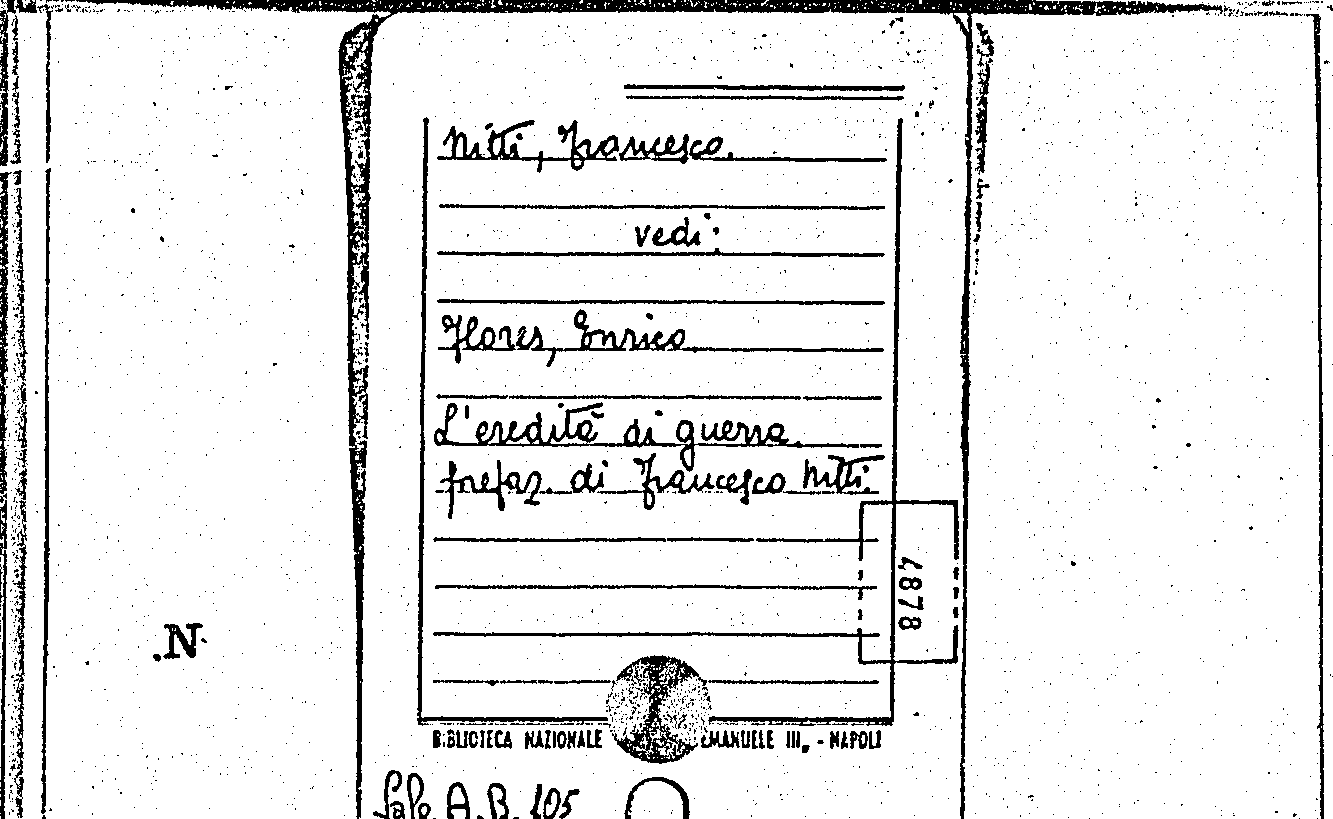 Nitti, Francesco.
vedi:
Flores, Enrico.
L'eredità di guerra.
prefaz. di Francesco Nitti.
4878
.N.
BIBLIOTECA NAZIONALE EMANUELE III„ - NAPOLI
Sala A.B. 105